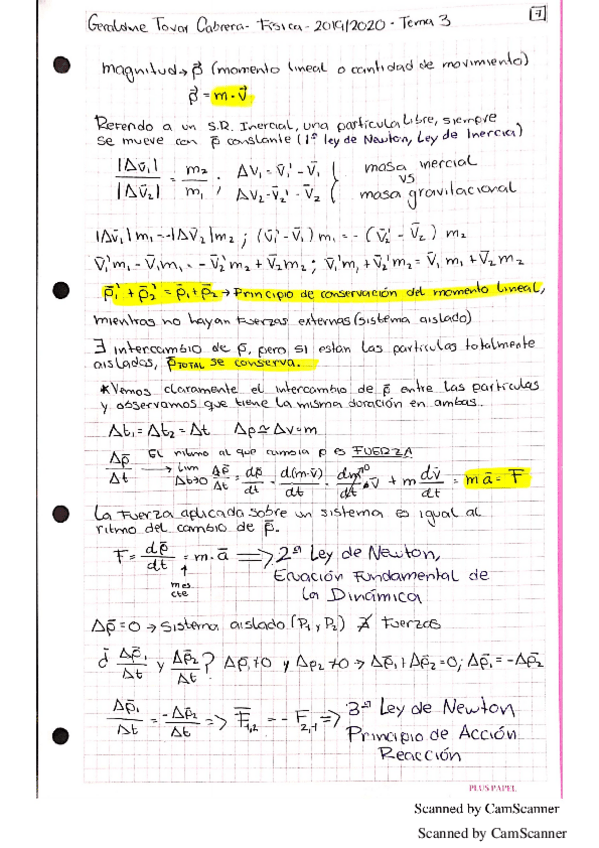 Geraldine Tovar Cabrera - Física - 2019/2020 - Tema 3
magnitud → p⃗ (momento lineal o cantidad de movimiento)
p⃗ = m · v⃗
un S.R. Inercial, una partícula Libre, siempre
se mueve con p⃗ constante (1ª ley de Newton, Ley de Inercia)
|Δv̄₁| / |Δv̄₂| = m₂ / m₁ ; Δv₁ = v̄₁' - v̄₁
Δv₂ - v̄₂' - v̄₂
masa inercial
vs
masa gravitacional
|Δv̄₁|m₁ = -|Δv̄₂|m₂ ; (v̄₁' - v̄₁) m₁ = - (v̄₂' - v̄₂) m₂
v̄₁'m₁ - v̄₁m₁ = - v̄₂'m₂ + v̄₂m₂ ; v̄₁'m₁ + v̄₂'m₂ = v̄₁m₁ + v̄₂m₂
p̄₁' + p̄₂' = p̄₁ + p̄₂ → Principio de conservación del momento lineal,
mientras no hayan fuerzas externas (sistema aislado)
∃ intercambio de p̄, pero si están las partículas totalmente
aisladas, p̄TOTAL se conserva.
*Vemos claramente el intercambio de p̄ entre las partículas
y observamos que tiene la misma duración en ambas.
Δt₁ = Δt₂ = Δt Δp ≃ Δv = m
Δp̄/Δt El ritmo al que cambia p es FUERZA
→ lim Δt→0 Δp̄/Δt = dp̄/dt = d(m·v̄)/dt = dm/dt · v̄ + m dv̄/dt = m ā = F
La Fuerza aplicada sobre un sistema es igual al
ritmo del cambio de p̄.
F = dp̄/dt = m · ā ⟹ 2ª Ley de Newton,
m es cte
Ecuación Fundamental de
la Dinámica
Δp̄ = 0 → Sistema aislado (P₁ y P₂) ∄ Fuerzas
¿ Δp̄₁/Δt y Δp̄₂/Δt ? Δp̄₁ ≠ 0 y Δp₂ ≠ 0 → Δp̄₁ + Δp̄₂ = 0; Δp̄₁ = -Δp̄₂
Δp̄₁/Δt = -Δp̄₂/Δt => F̄₁,₂ = - F₂,₁ => 3ª Ley de Newton
Principio de Acción
Reacción
PLUS PAPEL
Scanned by CamScanner
Scanned by CamScanner